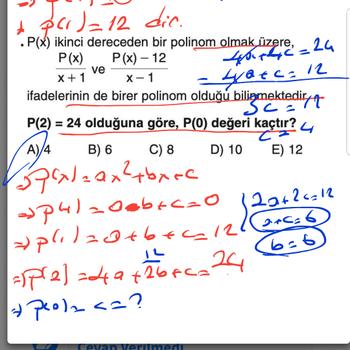 P(1) = 12 dir.
. P(x) ikinci dereceden bir polinom olmak üzere,
P(x) P(x) – 12
x + 1 ve x – 1
ifadelerinin de birer polinom olduğu bilinmektedir.
P(2) = 24 olduğuna göre, P(0) değeri kaçtır?
A) 4 B) 6 C) 8 D) 10 E) 12
4a+c = 12
3c = 12
c = 4
⇒ P(x) = ax²+bx+c
a-b+c=0
2a+2c=12
⇒ P(1) = a+b+c=12
a+c=6
b=6
12
⇒ P(2) = 4a+2b+c= 24
⇒ P(0) = c = ?
Cevap Verilmedi